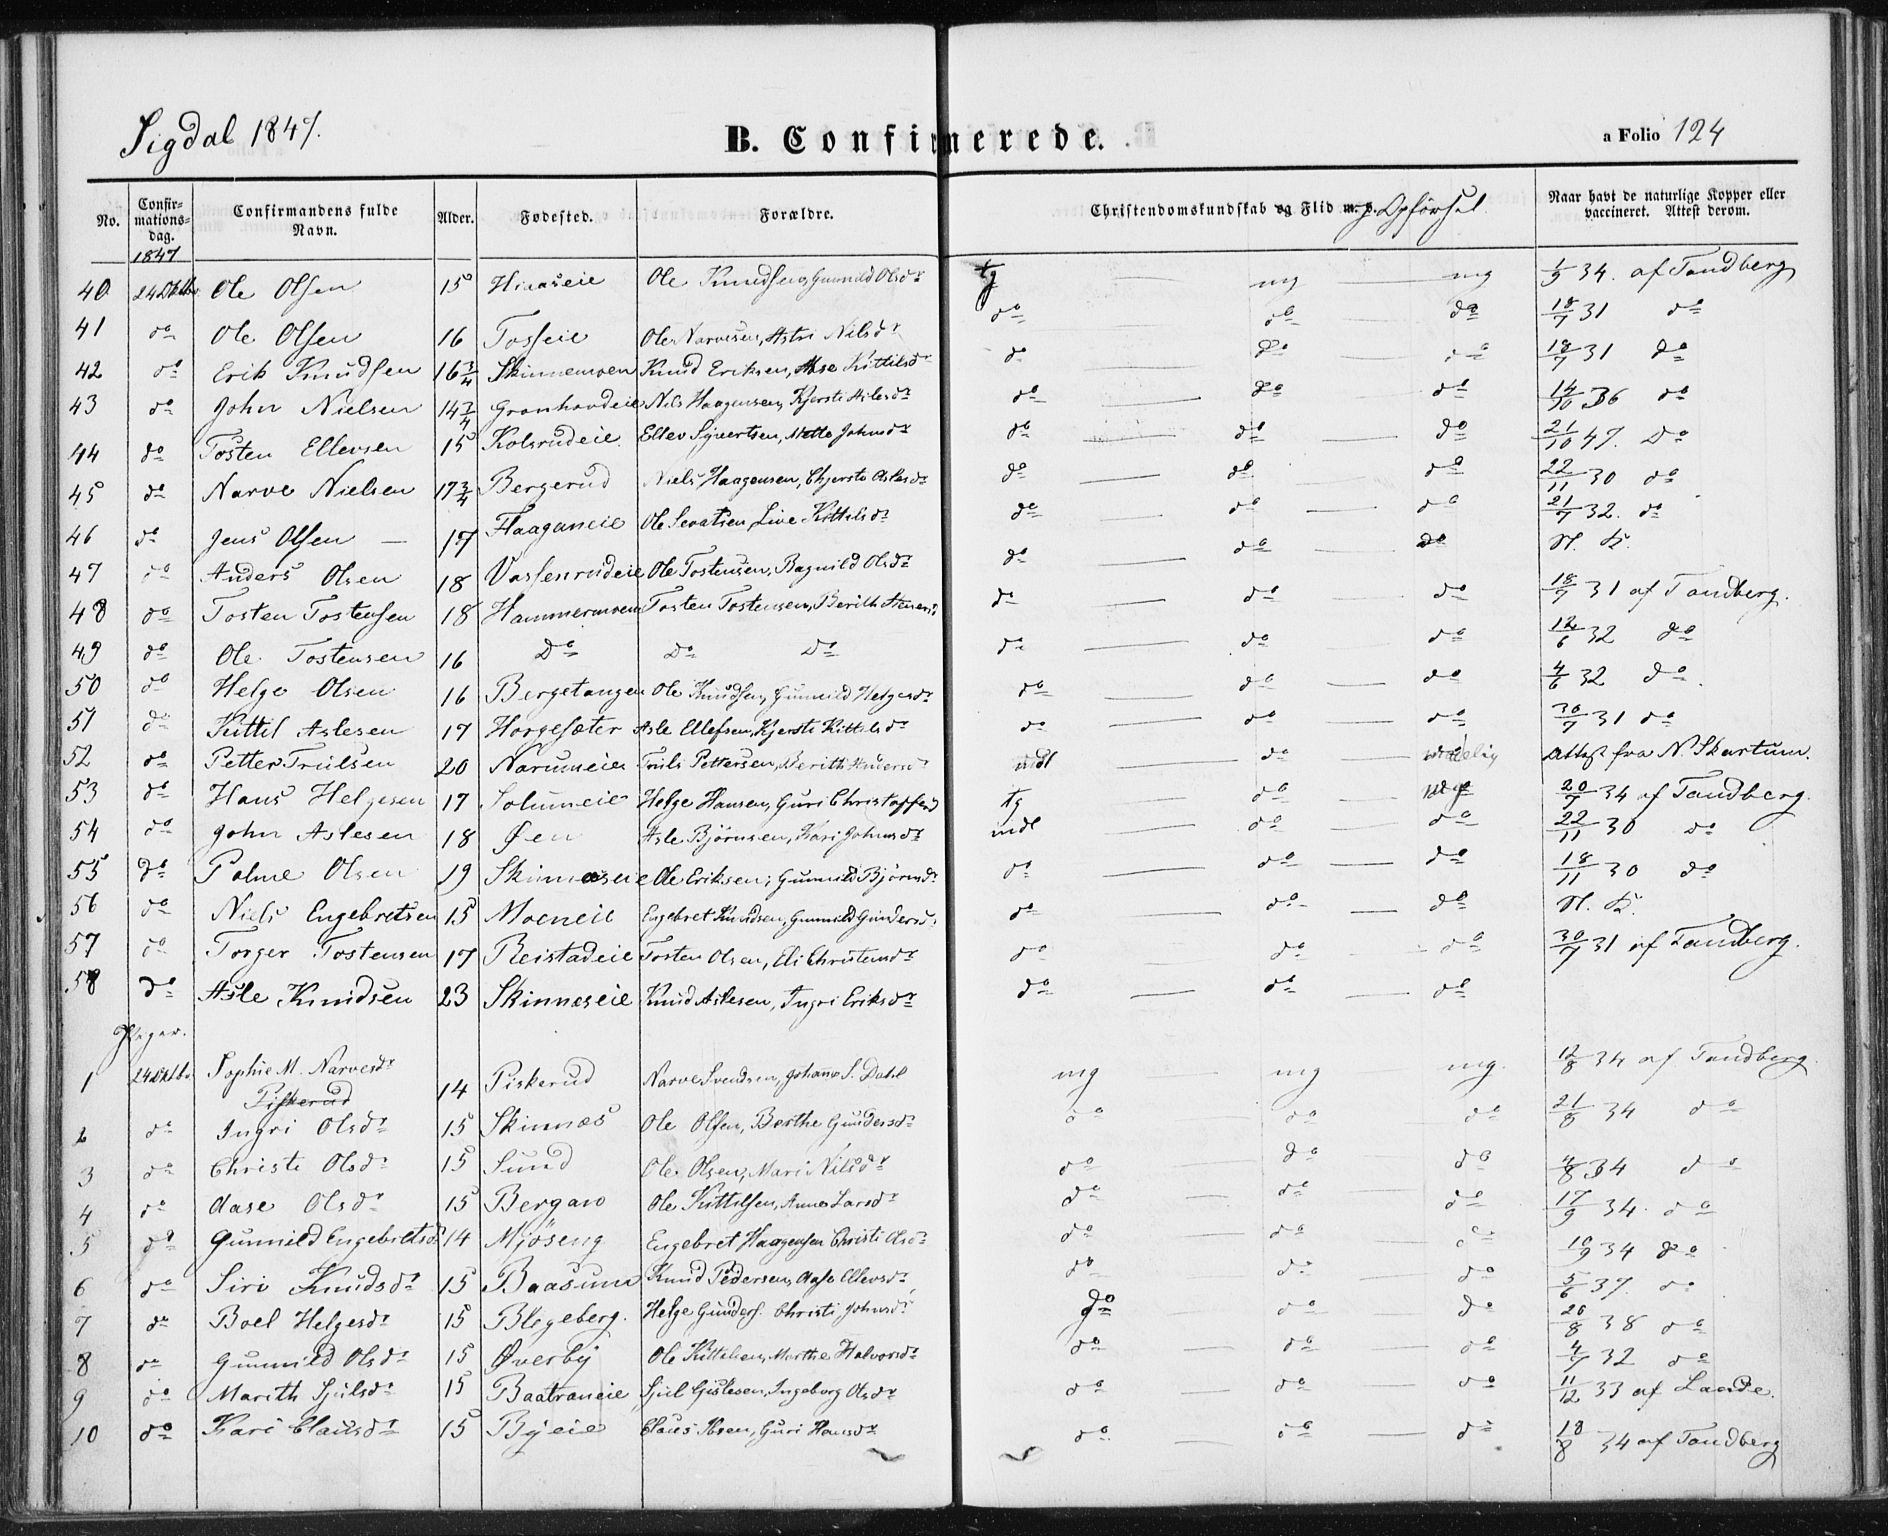 Sigdal 1847.
B. Confirmerede.
a Folio 124
No. Confirmationsdag. Confirmandens fulde Navn. Alder. Fødested. Forældre. Christendomskundskab og Flid m. v. Opførsel Naar havt de naturlige Kopper eller vaccineret. Attest derom.
1847
40 24 Oktbr Ole Olsen 15 Ole Knudsen, Gunnild Olsdr tg mg mg 1/9 34. af Tandberg
41 do Ole Olsen 16 Tosseie Ole Narvesen, Astri Nilsdr do do do 18/7 31 do
42 do Erik Knudsen 16 3/4 Skinnemoen Knud Eriksen, Aase Kittilsdr do do do 18/7 31 do
43 do John Nielsen 14 3/4 Gronhovdeie Nils Haagensen, Kjersti Aslesdr do do do 14/10 36 do
44 do Tosten Ellevsen 15 Kolsrudeie Ellev Syvertsen, Mette Johnsdr do do do 21/10 47. Do
45 do Narve Nielsen 17 3/4 Bergerud Niels Haagensen, Chjersti Aslesdr do do do 22/11 30 do
46 do Jens Olsen 17 Haaganeie Ole Live Kittilsdr do do do 21/7 32. do
47 do Anders Olsen 18 Vassenrudeie Ole Tostensen, Bagnild Olsdr do do do N. K.
48 do Tosten Tostensen 18 Hammermoen Tosten Tostensen, Berith do do do 18/7 31 af Tandberg.
49 do Ole Tostensen 16 Do Do Do do do do 12/6 32 do
50 do Helge Olsen 16 Bergetangen Ole Knudsen, Gunnild Helgesdr do do do 4/6 32 do
51 do Kittil Aslesen 17 Horgesæter Asle Ellefsen, Kjersti Kittilsdr do do do 30/7 31 do
52 do Petter Trulsen 20 Narumeie Truls Pettersen, Berith Andersdr mdl do Attest fra N. Skartum.
53 do Hans Helgesen 17 Solumeie Helge Hansen, Guri Christoffersd tg do mg 20/7 34 af Tandberg.
54 do John Aslesen 18 Øen Asle Björnsen, Kari Johnsdr mdl do do 22/11 30 do
55 do Palme Olsen 19 Skinnæseie Ole Eriksen, Gunnild Björnsdr do do do 18/11 30 do
56 do Niels Engebretsen 15 Moeneie Engebret Knudsen, Gunnild Gundersdr do do do N. K.
57 do Torger Tostensen 17 Reistadeie Tosten Olsen, Eli Christensdr do do do 30/7 31 af Tandberg.
58 do Asle Knudsen 23 Skinnæseie Knud Aslesen, Ingri Eriksdr do do do
Piger.
1 24 Oktbr Sophie M. Narvesdr 14 Piskerud Narve Svendsen, Johanne S. Dahl mg mg mg. 12/8 34 af Tandberg
Piskerud
2 do Ingri Olsdr 15 Skinnæs Ole Olsen, Berthe Gundersdr do do do 21/8 34 do
3 do Christi Olsdr 15 Sund Ole Olsen, Mari Nilsdr do do do 4/8 34 do
4 do Aase Olsdr 15 Bergan Ole Kittilsen, Anne Larsdr do do do 17/9 34. do
5 do Gunnild Engebretsd 14 Mjöseng Engebret Haagensen Christi Olsdr do do do 10/9 34 do
6 do Siri Knudsdr 15 Baasum Knud Pedersen, Aase Ellevsdr do do do 5/6 37. do
7 do Boel Helgesdr 15 Blegeberg. Helge Gunders. Christi Johnsdr do do do 20/8 38 do
8 do Gunnild Olsdr 15 Øverby Ole Kittelsen, Marthe Halvorsdr do do do 4/7 32 do
9 do Marith Sjulsdr 15 Baatraneie Sjul Gislesen, Ingeborg Olsdr do do do 11/12 33 af Laerde.
10 do Kari Clausdr 15 Byeie Claus Ibsen, Guri Hansdr do do do 18/8 34 af Tandberg